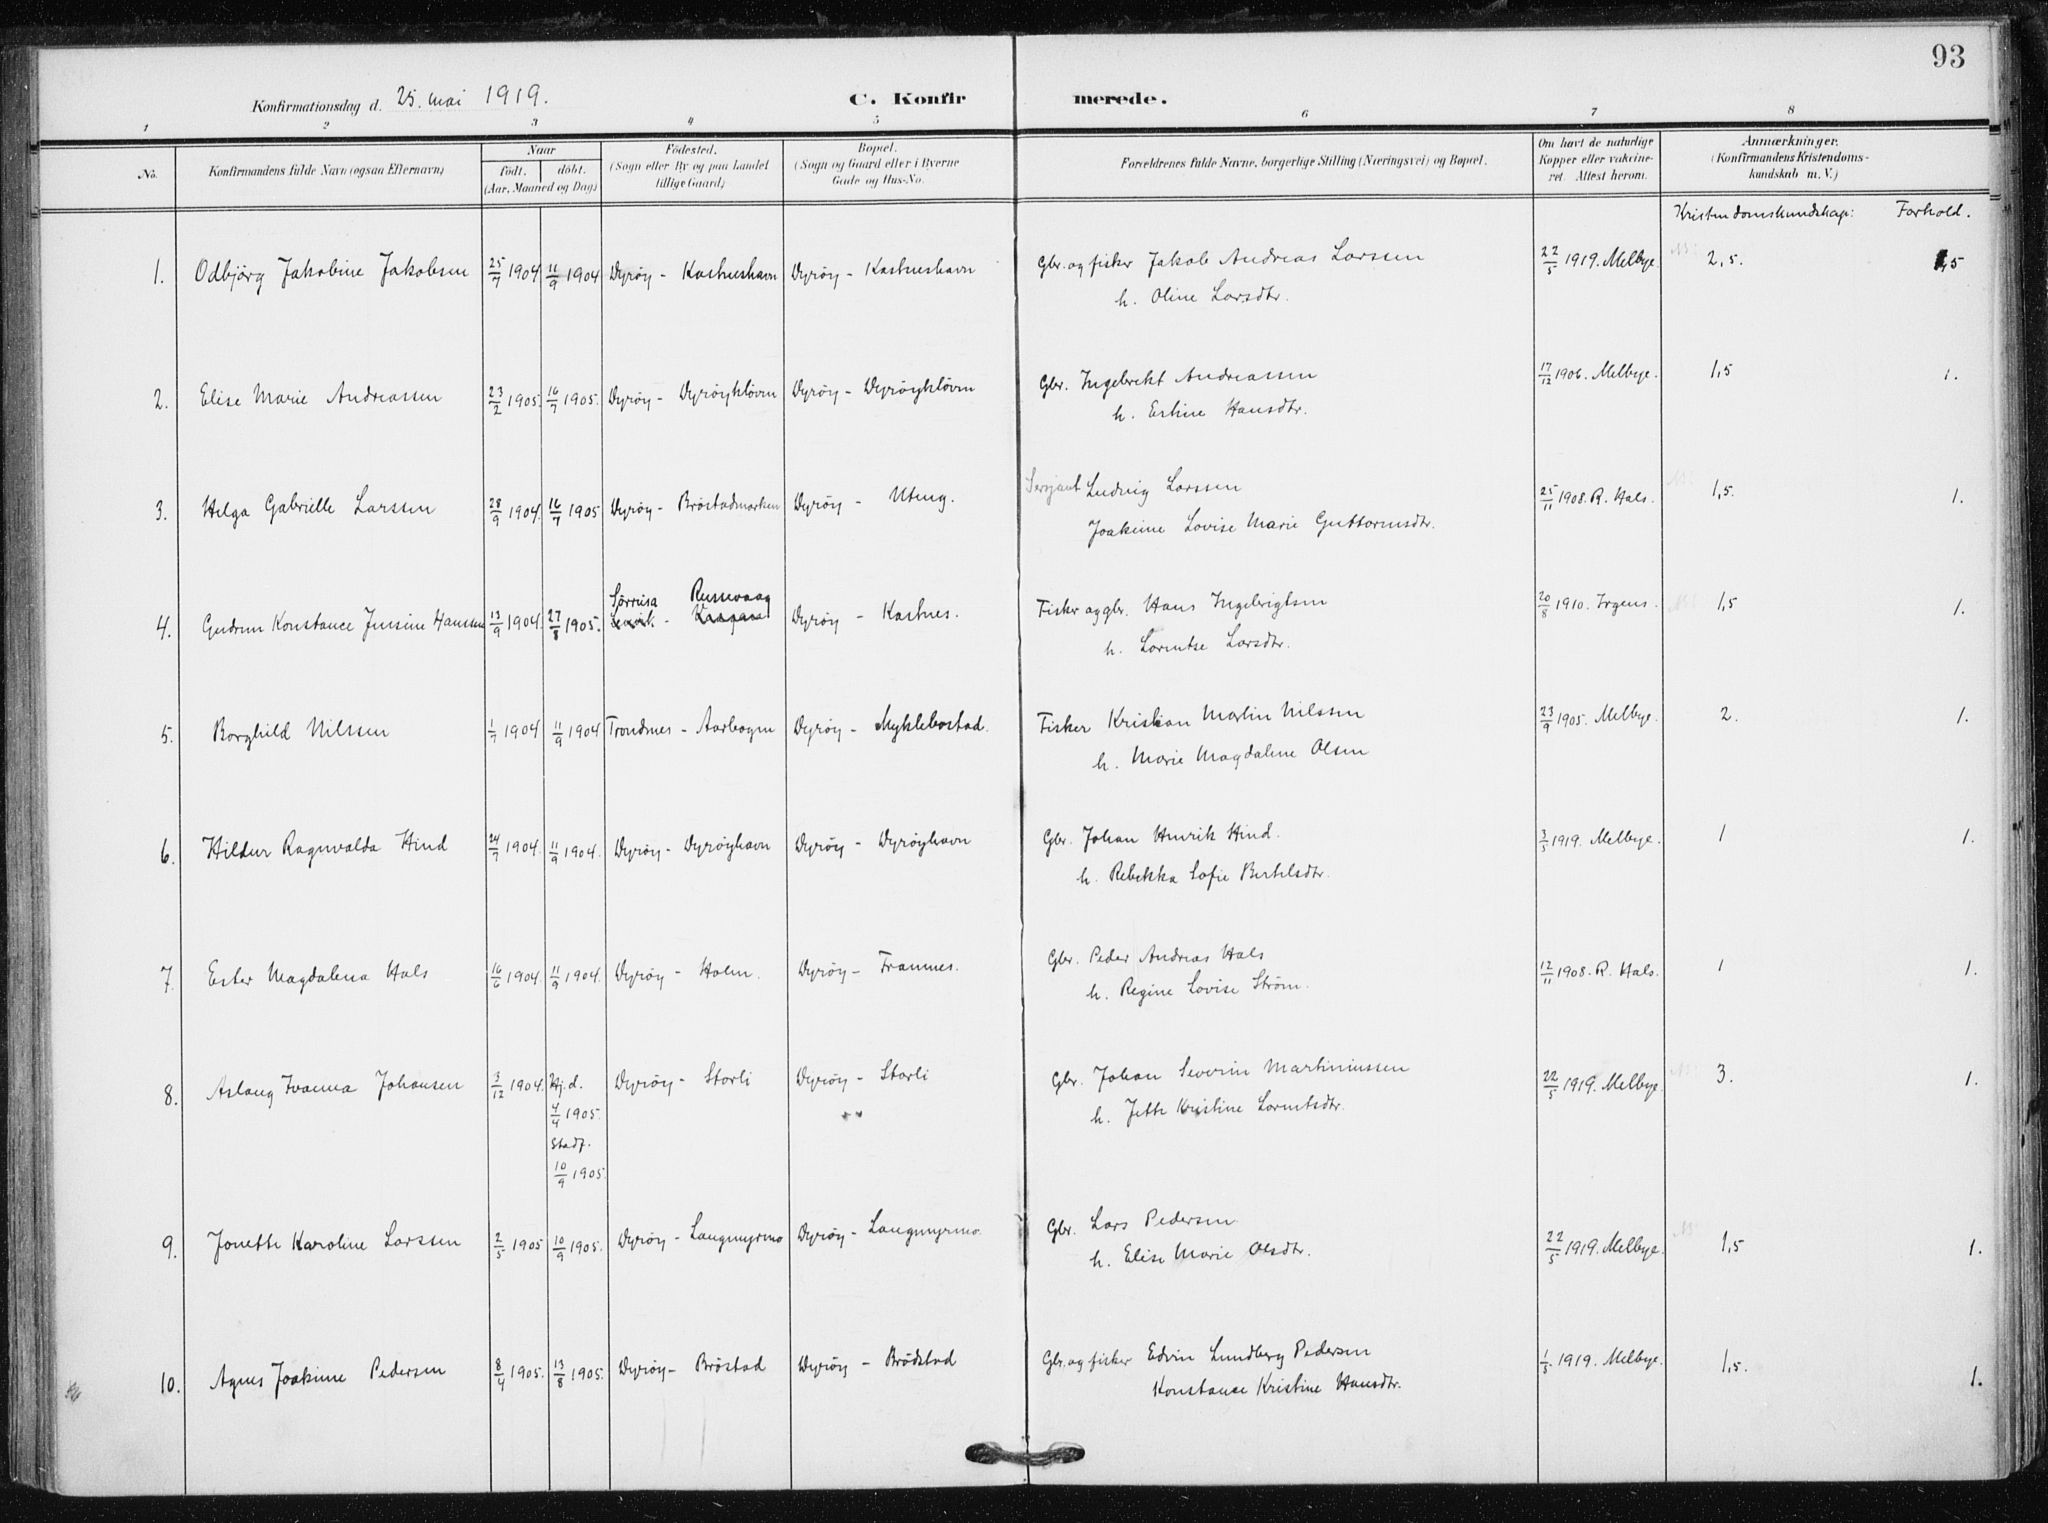 93
Konfirmationsdag d. 25. mai 1919. C. Konfirmerede.
1 2 3 4 5 6 7 8
No. Konfirmandens fulde Navn (ogsaa Efternavn) Naar født. døbt. (Aar, Maaned og Dag) Fødested. (Sogn eller By og paa Landet tillige Gaard) Bopæl. (Sogn og Gaard eller i Byerne Gade og Hus-No. Forældrenes fulde Navne, borgerlige Stilling (Næringsvei) og Bopæl. Om havt de naturlige Kopper eller vakcineret. Attest herom. Anmærkninger. (Konfirmandens Kristendomskundskab m. V.)
Kristendomskundskap: Forhold.
1. Odbjørg Jakobine Jakobsen 25/7 1904 11/9 1904 Dyrøy - Kastneshavn Dyrøy - Kastneshavn Gbr. og fisker Jakob Andreas Larssen 22/5 1919. Melbye. 2,5. 1,5
h. Oline Larsdtr.
2. Elise Marie Andreassen 23/2 1905. 16/7 1905. Dyrøy - Dyrøykløven Dyrøy - Dyrøykløven Gbr. Ingebrekt Andreassen 17/12 1906. Melbye. 1,5 1.
h. Ertine Hansdtr.
3. Helga Gabrielle Larssen 28/9 1904. 16/7 1905 Dyrøy - Brøstadmarken Dyrøy - Uteng. Sersjant Ludvig Larssen 25/11 1908. R. Hals. 1,5. 1.
Joakime Lovise Marie Guttormsdtr.
4. Gudrun Konstance Jensine Hanssen 13/9 1904. 27/8 1905. Sørreisa Russevaag Dyrøy - Kastnes. Fisker og gbr. Hans Ingebrigtsen 20/8 1910. Irgens. 1,5 1.
h. Lorentse Larsdtr.
5. Borghild Nilssen 1/7 1904 11/9 1904 Trondnes - Aarbogen Dyrøy - Myklebostad. Fisker Kristian Martin Nilssen 23/9 1905. Melbye. 2. 1.
h. Marie Magdalene Olsen
6. Hildur Ragnvalda Hind 24/7 1904. 11/9 1904. Dyrøy - Dyrøyhavn Dyrøy - Dyrøyhavn Gbr. Johan Henrik Hind. 3/5 1919. Melbye. 1 1.
h. Rebekka Sofie Bertelsdtr.
7. Ester Magdalena Hals 16/6 1904. 11/9 1904. Dyrøy - Holm. Dyrøy - Framnes. Gbr. Peder Andreas Hals 12/11 1908. R. Hals. 1 1.
h. Regine Lovise Strøm.
8. Aslaug Ivanna Johansen 3/12 1904. Hj.d. 4/4 1905. Stadf. 10/9 1905. Dyrøy - Storli Dyrøy - Storli Gbr. Johan Severin Martinussen 22/5 1919. Melbye. 3. 1.
h. Jette Kristine Lorentsdtr.
9. Jonette Karoline Larssen 2/5 1905 10/9 1905. Dyrøy - Langmyrmo Dyrøy - Langmyrmo. Gbr. Lars Pedersen 22/5 1919. Melbye. 1,5 1.
h. Elise Marie Olsdtr.
10. Agnes Joakime Pedersen 8/4 1905. 13/8 1905. Dyrøy - Brøstad Dyrøy - Brødstad Gbr. og fisker Edvin Lundberg Pedersen 1/5 1919. Melbye. 1,5. 1.
Konstance Kristine Hansdtr.